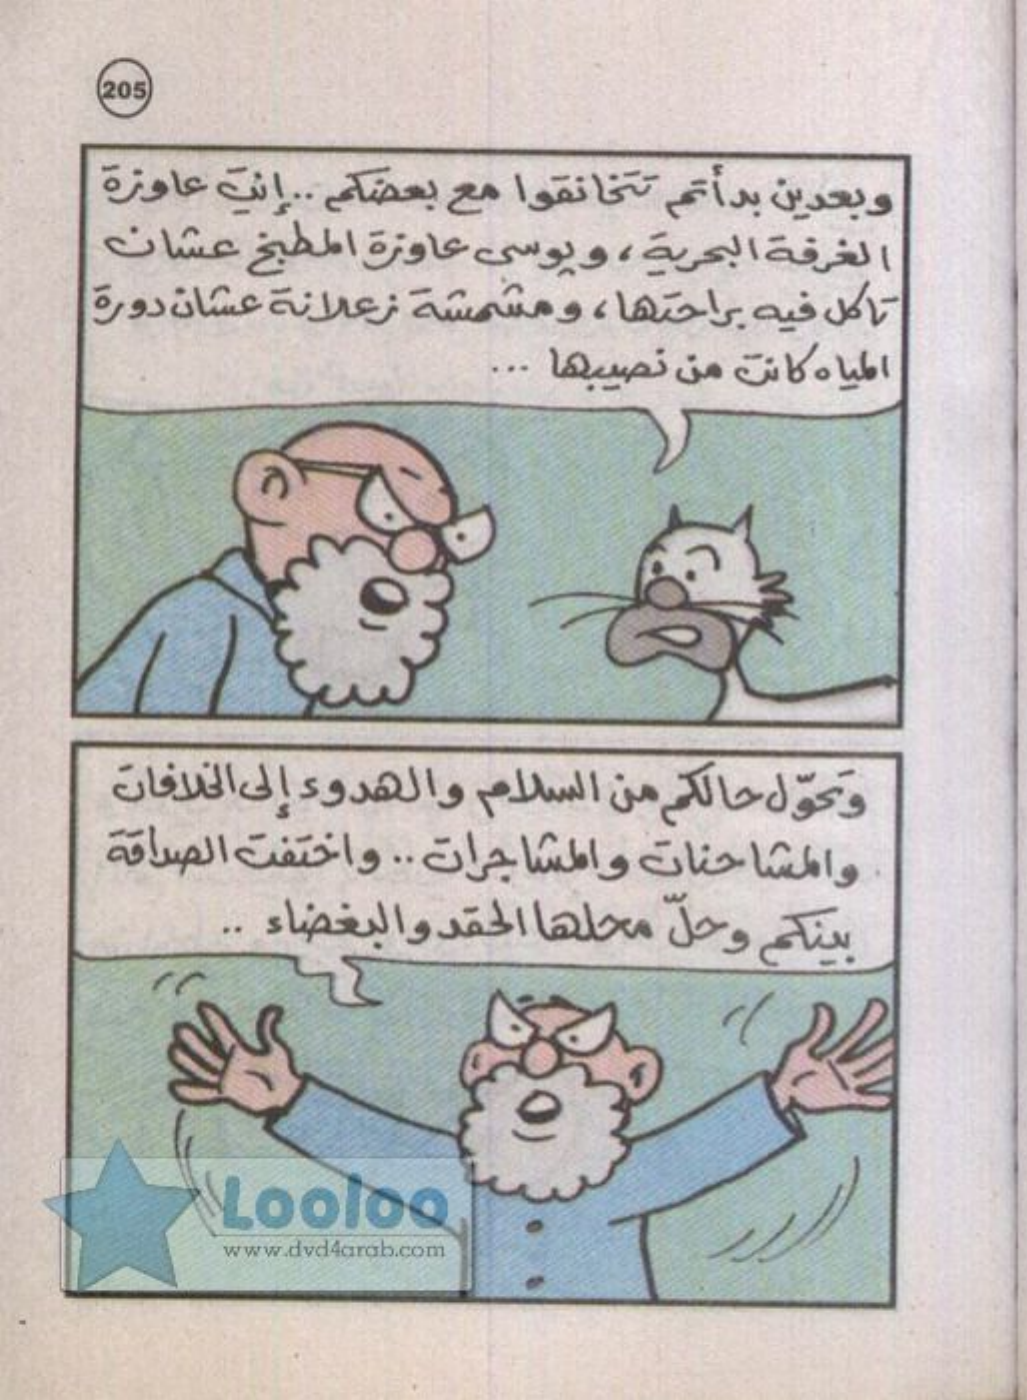 205
وبعدين بدأتم تتخانقوا مع بعضكم .. إنتِ عاوزة
الغرفة البحرية، وبوسى عاوزة المطبخ عشان
تاكل فيه براحتها، ومشمشة زعلانة عشان دورة
المياه كانت من نصيبها ...
وتحوّل حالكم من السلام والهدوء إلى الخلافات
والمشاحنات والمشاجرات .. واختفت الصداقة
بينكم وحلّ محلها الحقد والبغضاء ..
Looloo
www.dvd4arab.com